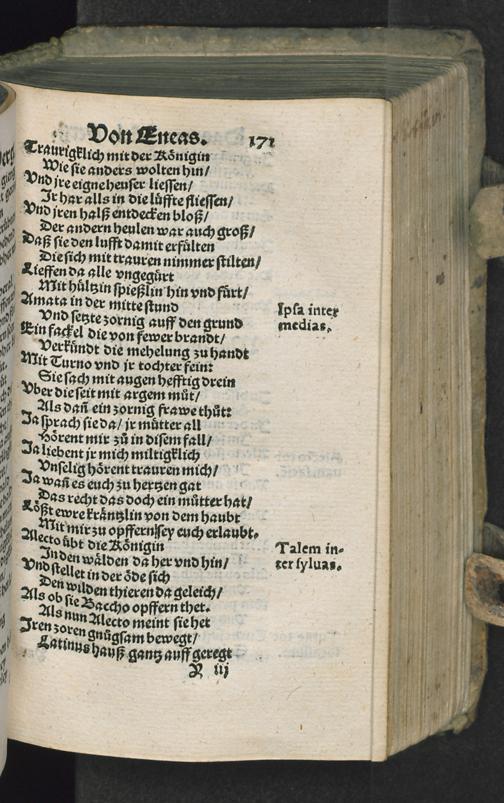 Von Eneas. 171
Traurigklich mit der Königin
Wie sie anders wolten hin/
Vnd jre eigne heuser liessen/
Jr har alls in die lüffte fliessen/
Vnd jren halß entdecken bloß/
Der andern heulen war auch groß/
Daß sie den lufft damit erfülten
Die sich mit trauren nimmer stilten/
Lieffen da alle vngegürt
Mit hültzin spießlin hin vnd fürt/
Amata in der mitte stund
Vnd setzte zornig auff den grund
Ein fackel die von fewer brandt/
Verkündt die mehelung zu handt
Mit Turno vnd jr tochter fein:
Sie sach mit augen hefftig drein
Vber die seit mit argem müt/
Als dañ ein zornig frawe thüt:
Ja sprach sie da/ jr mütter all
Hörent mir zü in disem fall/
Ja liebent jr mich miltigklich
Vnselig hörent trauren mich/
Ja wañ es euch zu hertzen gat
Das recht das doch ein mütter hat/
Lößt ewre kräntzlin von dem haubt
Mit mir zu opffern/sey euch erlaubt.
Alecto übt die Königin
In den wälden da her vnd hin/
Vnd stellet in der öde sich
Den wilden thieren da geleich/
Als ob sie Baccho opffern thet.
Als nun Alecto meint sie het
Jren zoren gnügsam bewegt/
Latinus hauß gantz auff geregt
Y iij
Ipsa inter
medias.
Talem in-
ter syluas.